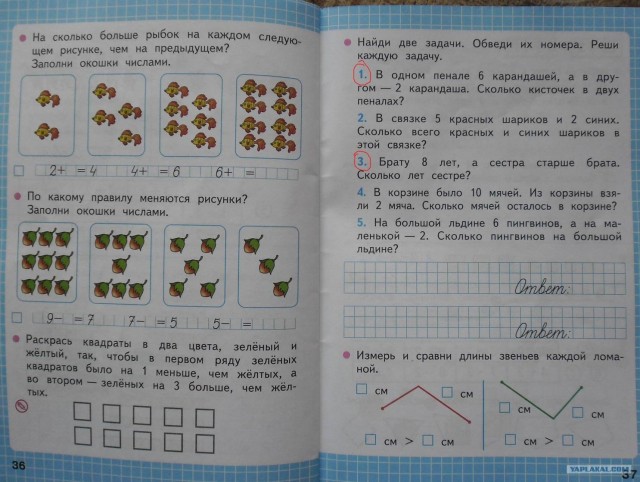 На сколько больше рыбок на каждом следую-
щем рисунке, чем на предыдущем?
Заполни окошки числами.
2+ =4 4+ =6 6+ =
По какому правилу меняются рисунки?
Заполни окошки числами.
9− =7 7− =5 5− =
Раскрась квадраты в два цвета, зелёный и
жёлтый, так, чтобы в первом ряду зелёных
квадратов было на 1 меньше, чем жёлтых, а
во втором — зелёных на 3 больше, чем жёл-
тых.
36
Найди две задачи. Обведи их номера. Реши
каждую задачу.
1. В одном пенале 6 карандашей, а в дру-
гом — 2 карандаша. Сколько кисточек в двух
пеналах?
2. В связке 5 красных шариков и 2 синих.
Сколько всего красных и синих шариков в
этой связке?
3. Брату 8 лет, а сестра старше брата.
Сколько лет сестре?
4. В корзине было 10 мячей. Из корзины взя-
ли 2 мяча. Сколько мячей осталось в корзине?
5. На большой льдине 6 пингвинов, а на ма-
ленькой — 2. Сколько пингвинов на большой
льдине?
Ответ:
Ответ:
Измерь и сравни длины звеньев каждой лома-
ной.
см см см см
см > см см > см
37
YAPLAKAL.COM